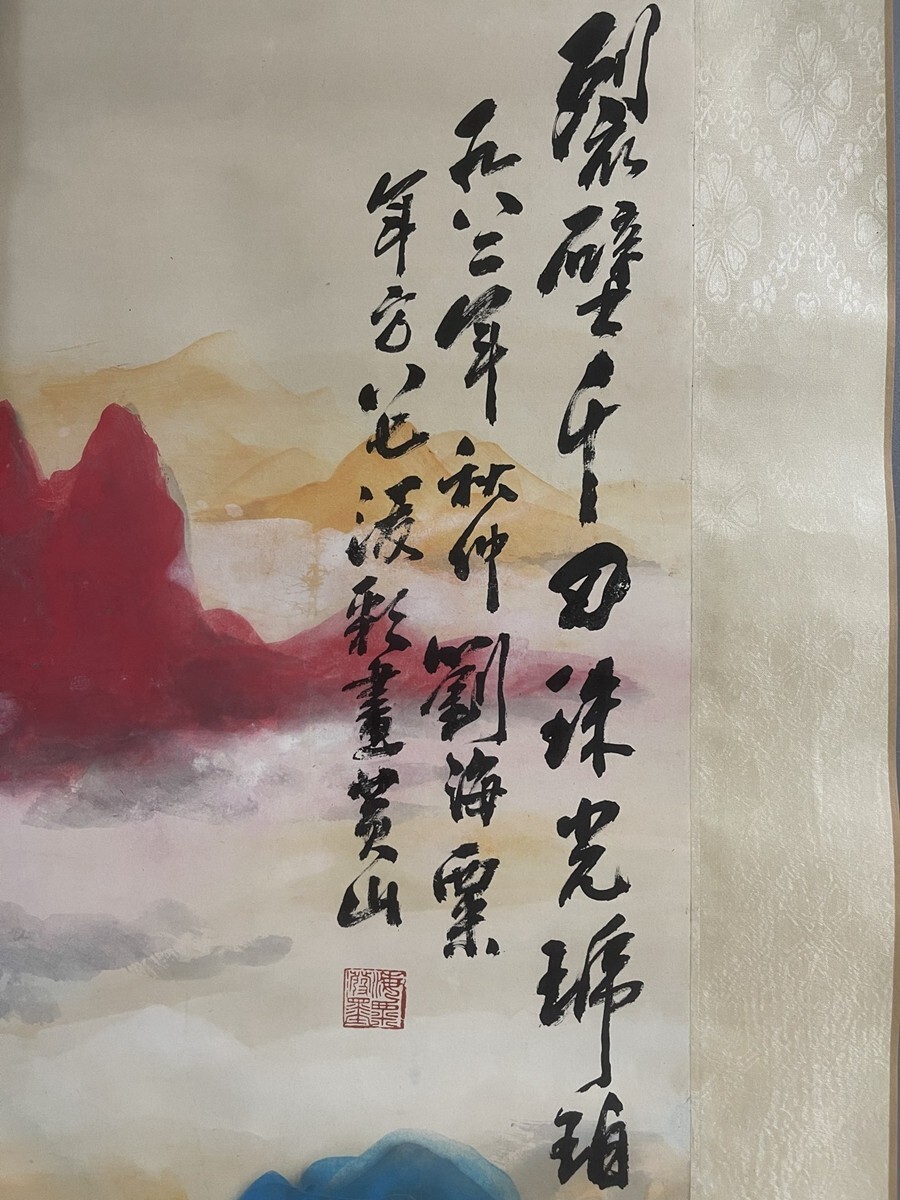 裂壁千刃珠光琥珀
一九八二年秋仲劉海粟
年方八七潑彩畫黄山
海粟潑墨